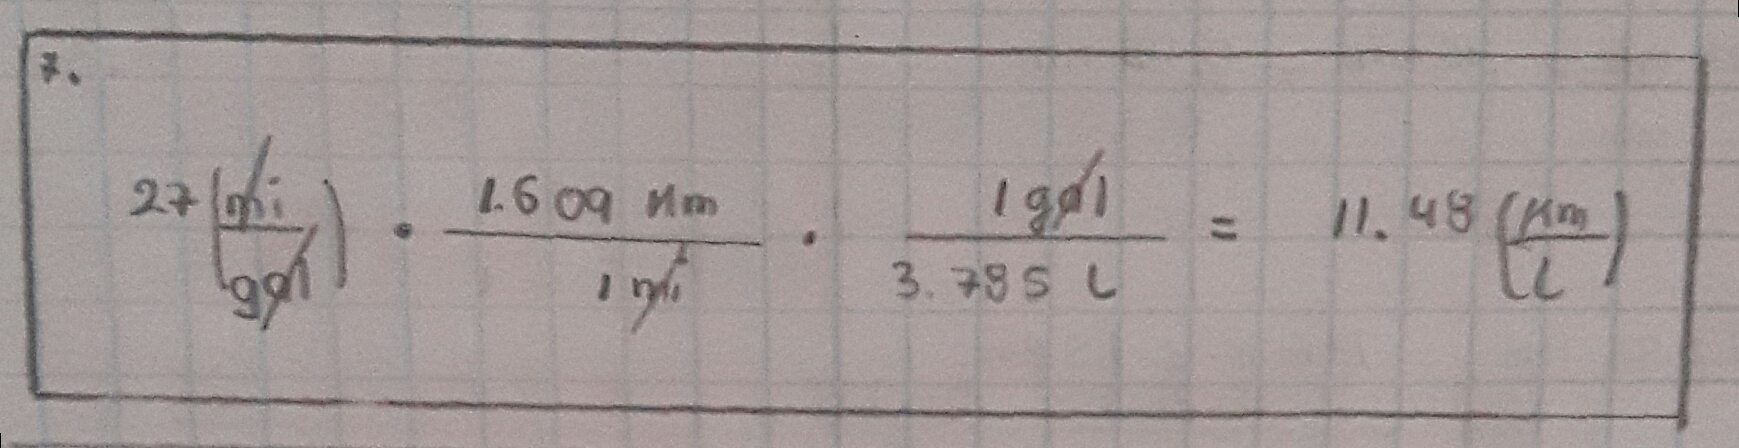 7.
27 (mi/gal) · 1.609 Km / 1 mi · 1 gal / 3.785 L = 11.48 (Km/L)